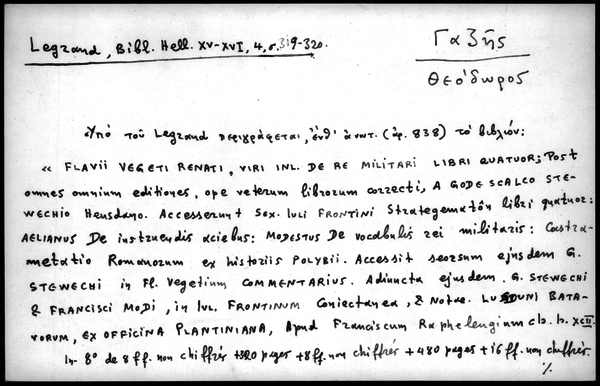 Legrand, Bibl. Hell. XV-XVI, 4, σ. 319-320.
Γαζῆς
Θεόδωρος
Ὑπὸ τοῦ Legrand περιγράφεται, ἐνθ' ἀνωτ. (ἀρ. 838) τὸ βιβλίον:
« FLAVII VEGETI RENATI, VIRI INL. DE RE MILITARI LIBRI QUATUOR; Post
omnes omnium editiones, ope veterum librorum correcti, A GODESCALCO STE-
WECHIO Heusdano. Accesserunt Sex. IULI FRONTINI Strategematôn libri quatuor:
AELIANUS De instruendis aciebus: MODESTUS De vocabulis rei militaris: Castra-
metatio Romanorum ex historiis POLYBII. Accessit seorsum ejusdem G.
STEWECHI in Fl. Vegetium COMMENTARIUS. Adiuncta ejusdem G. STEWECHI
& FRANCISCI MODI, in IUL. FRONTINUM Coniectanea, & Notae. LUGDUNI BATA-
VORUM, EX OFFICINA PLANTINIANA, Apud Franciscum Raphelengium cIↄ. Iↄ. XCII.
In-8º de 8 ff. non chiffrés + 320 pages + 8 ff. non chiffrés + 480 pages + 16 ff. non chiffrés.
%